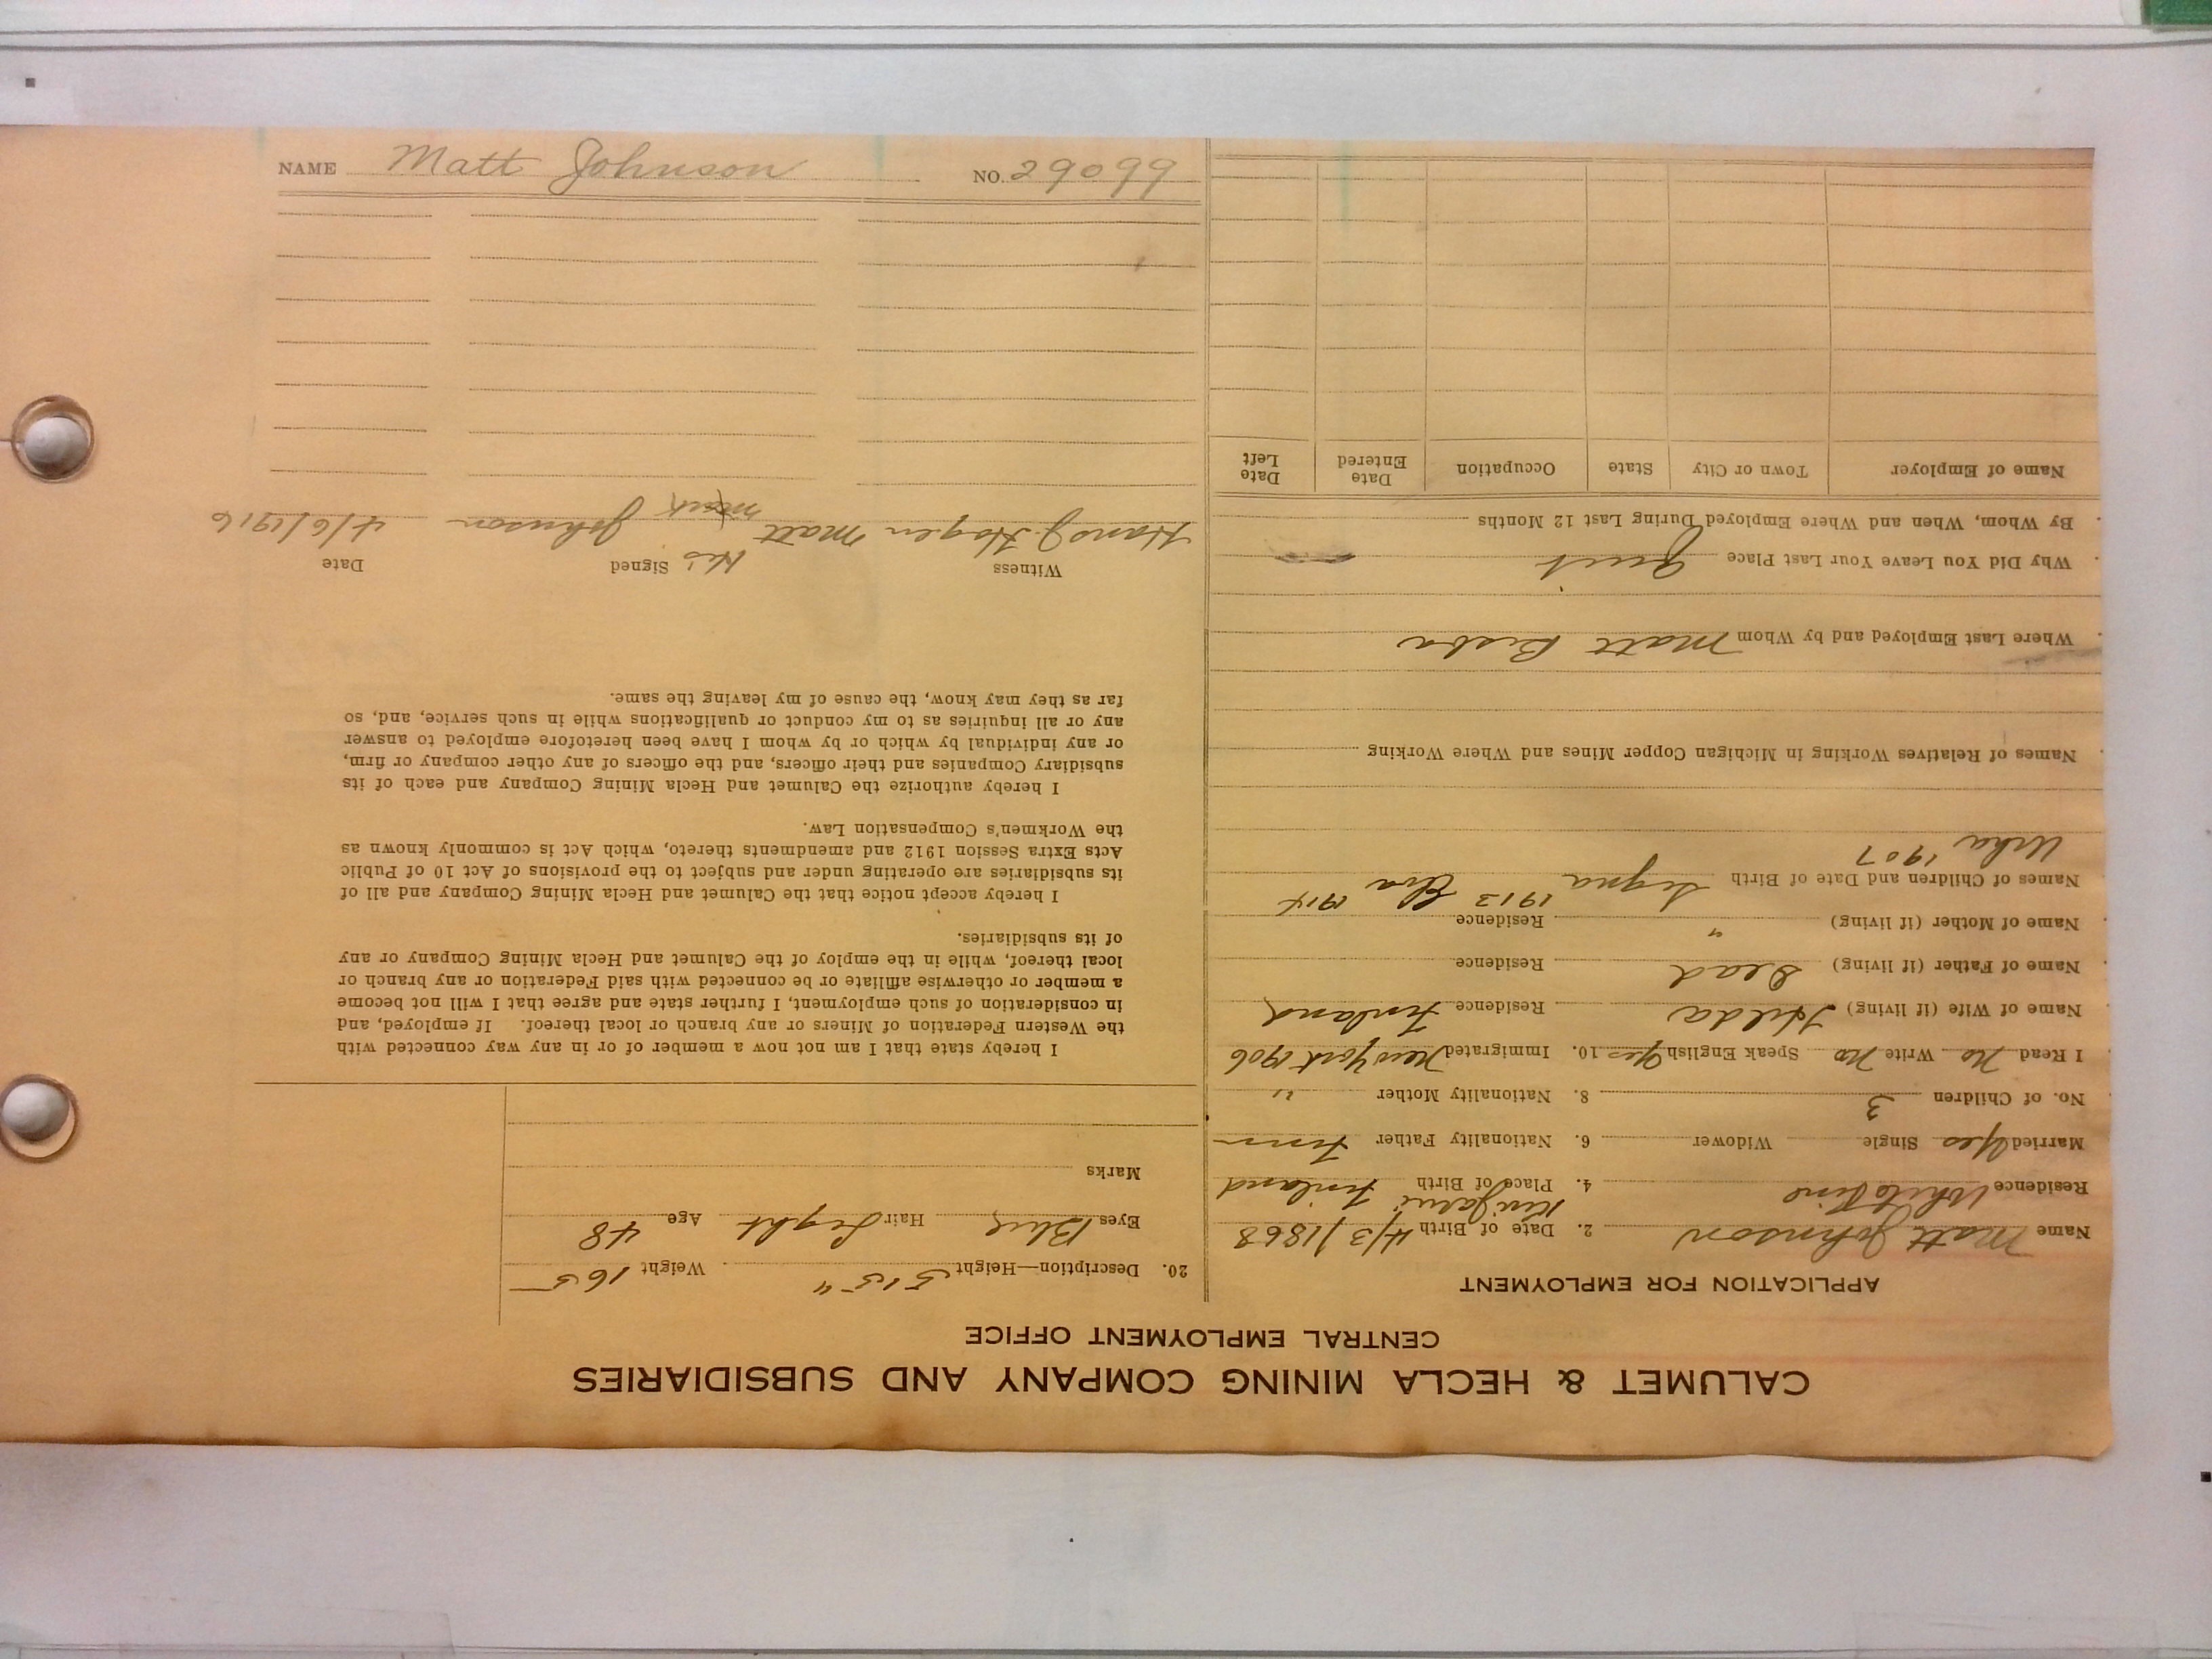 CALUMET & HECLA MINING COMPANY AND SUBSIDIARIES
CENTRAL EMPLOYMENT OFFICE
APPLICATION FOR EMPLOYMENT
Name Matt Johnson 2. Date of Birth 4/3/1868
Residence White Pine 4. Place of Birth Kivijarvi Finland
Married Yes Single Widower 6. Nationality Father Finn
No. of Children 3 8. Nationality Mother "
I Read No Write No Speak English Yes 10. Immigrated New York 1906
Name of Wife (if living) Hilda Residence Finland
Name of Father (if living) Dead Residence
Name of Mother (if living) " Residence
Names of Children and Date of Birth Segna 1913 Elva 1914
Urha 1907
Names of Relatives Working in Michigan Copper Mines and Where Working
Where Last Employed and by Whom Matt
Why Did You Leave Your Last Place Quit
By Whom, When and Where Employed During Last 12 Months
Name of Employer Town or City State Occupation Date Entered Date Left
20. Description—Height 5'5" Weight 165
Eyes Blue Hair Light Age 48
Marks
I hereby state that I am not now a member of or in any way connected with
the Western Federation of Miners or any branch or local thereof. If employed, and
in consideration of such employment, I further state and agree that I will not become
a member or otherwise affiliate or be connected with said Federation or any branch or
local thereof, while in the employ of the Calumet and Hecla Mining Company or any
of its subsidiaries.
I hereby accept notice that the Calumet and Hecla Mining Company and all of
its subsidiaries are operating under and subject to the provisions of Act 10 of Public
Acts Extra Session 1912 and amendments thereto, which Act is commonly known as
the Workmen's Compensation Law.
I hereby authorize the Calumet and Hecla Mining Company and each of its
subsidiary Companies and their officers, and the officers of any other company or firm,
or any individual by which or by whom I have been heretofore employed to answer
any or all inquiries as to my conduct or qualifications while in such service, and, so
far as they may know, the cause of my leaving the same.
Witness His Signed Date
Hans J. Hogen Matt x Johnson 4/6/1916
mark
NAME Matt Johnson NO. 29099